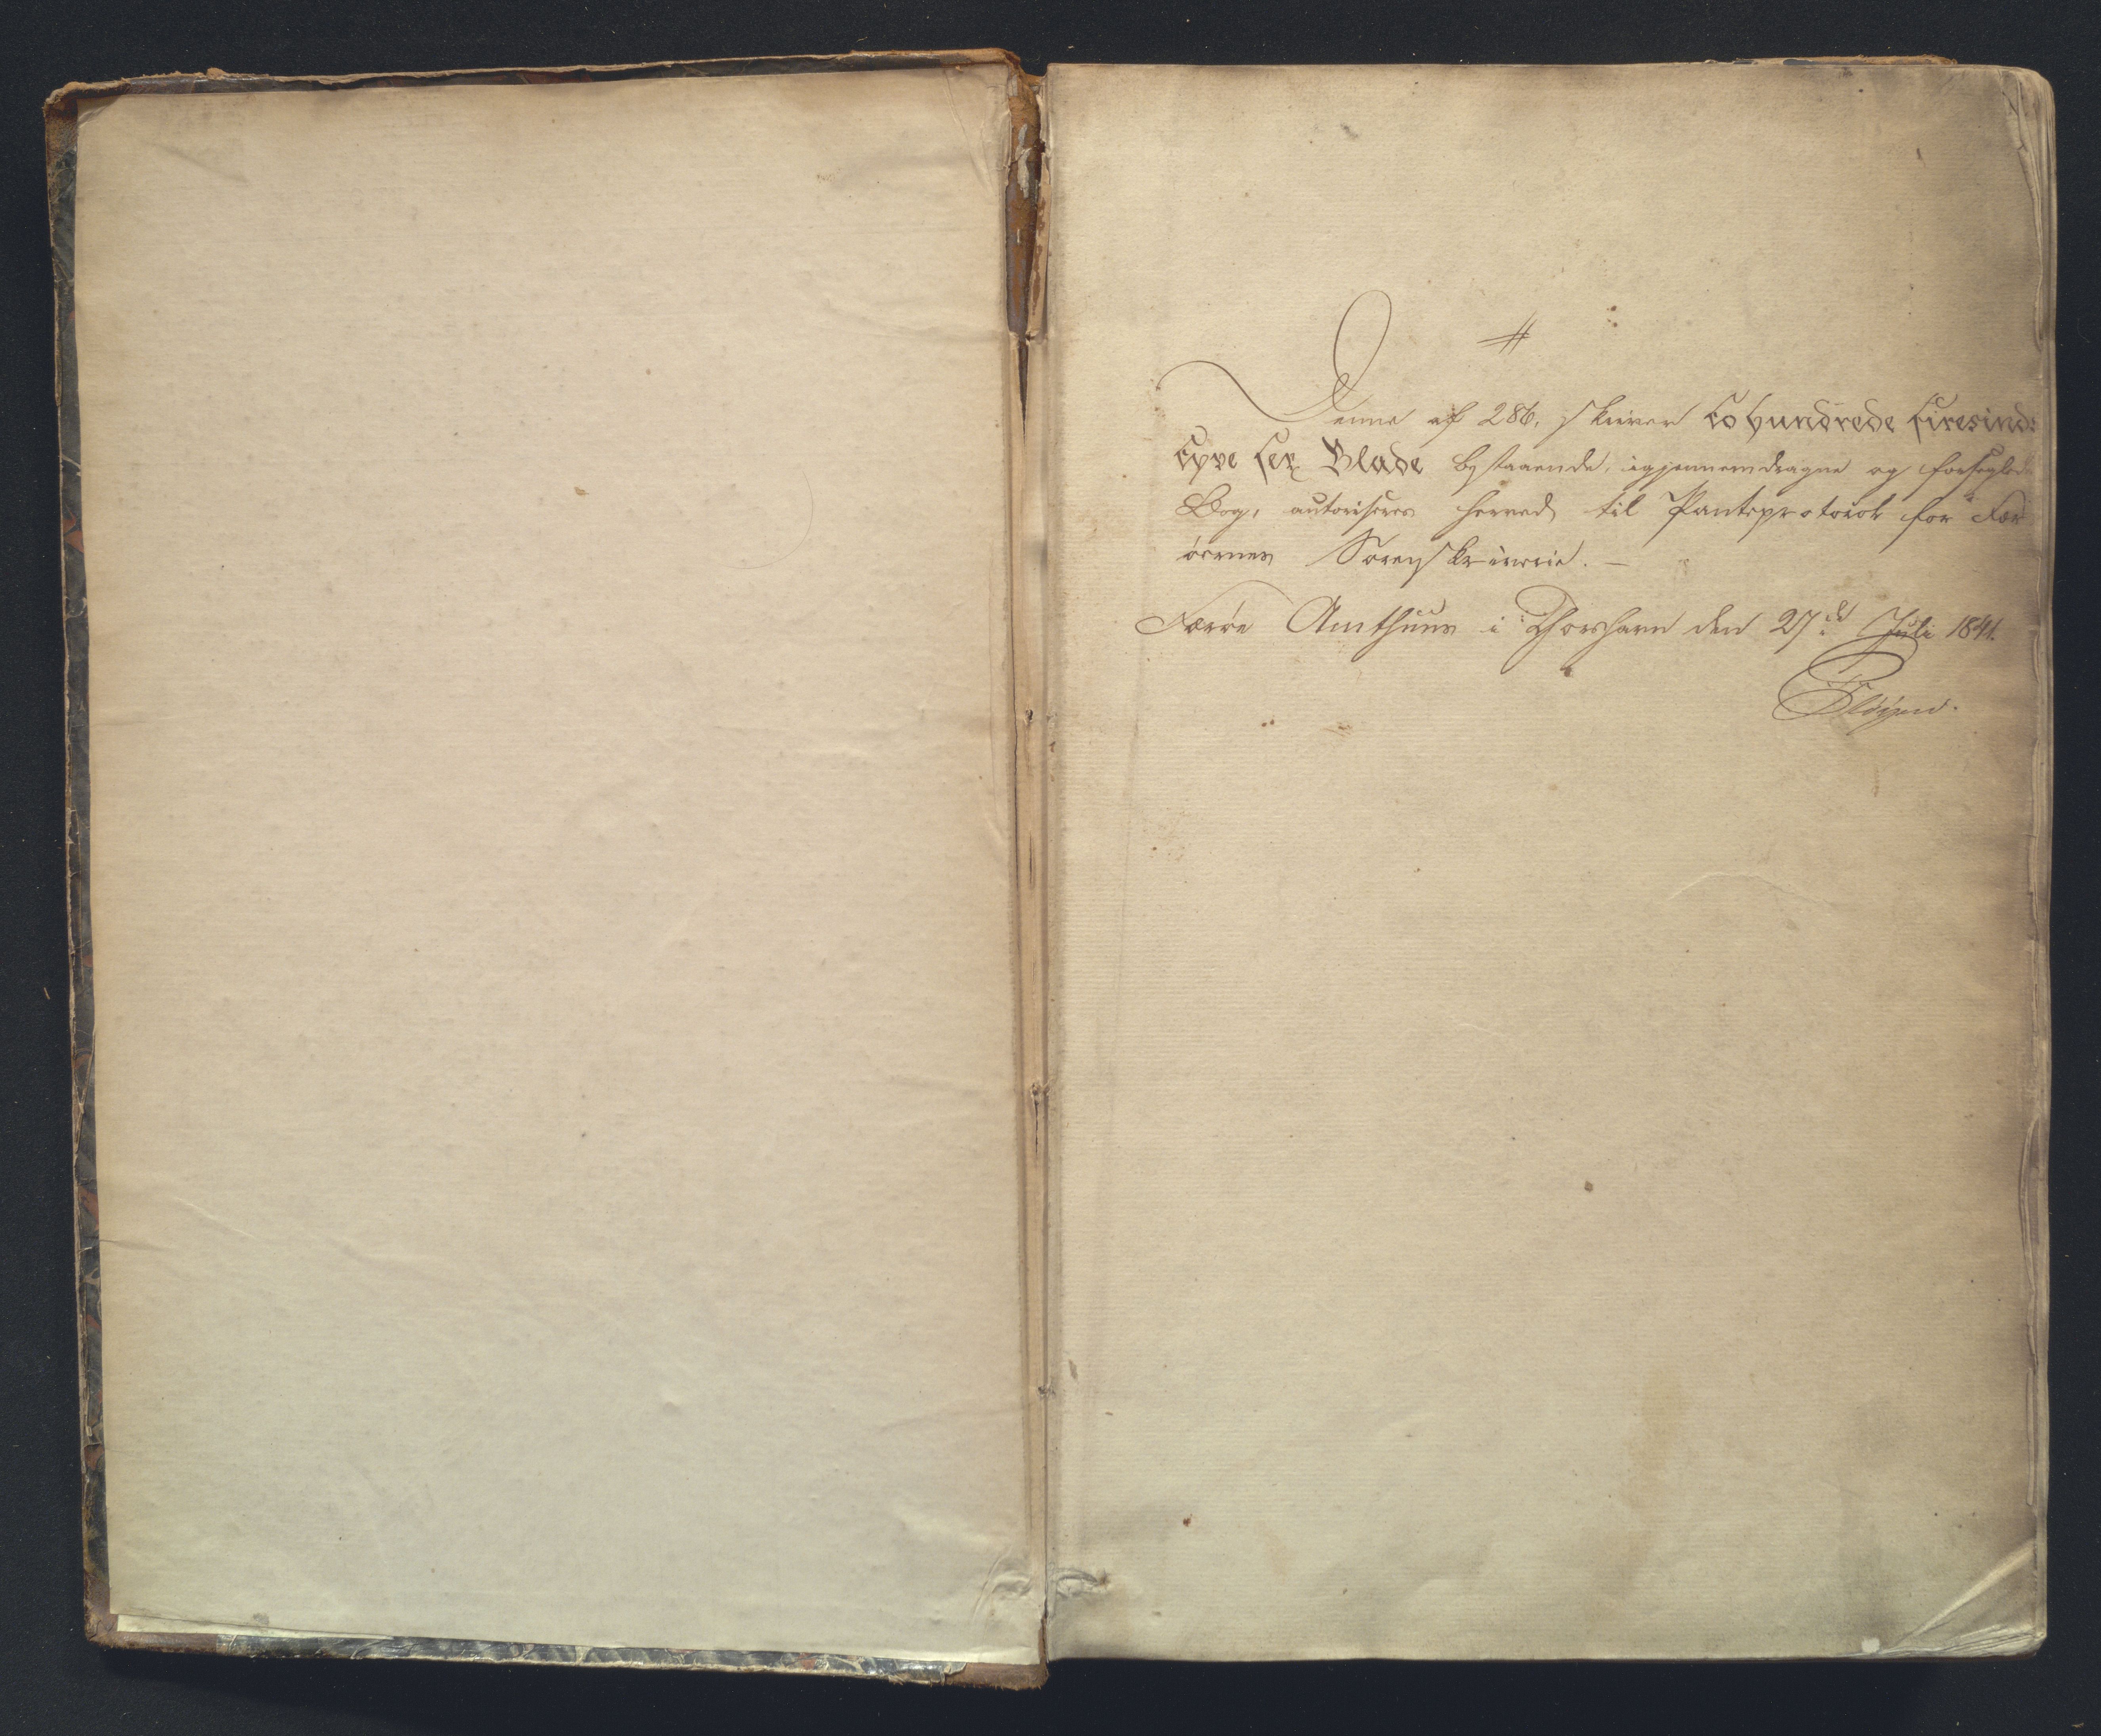 Denne af 286, skriver to hundrede firesinds
tyve sex Blade bestaaende, igjennemdragne og forseglede
Bog, autoriseres herved til Panteprotocol for Fær
öernes Sorenskriverie. —
Færöe Amthuus i Thorshavn den 27de Juli 1841.
Pløyen.